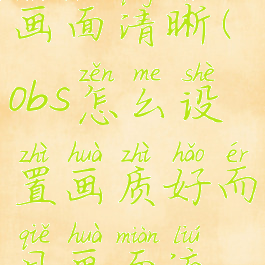 画面清晰(
zěn me shè
obs怎么设
zhì huà zhì hǎo ér
置画质好而
qiě huà miàn liú
且画面流